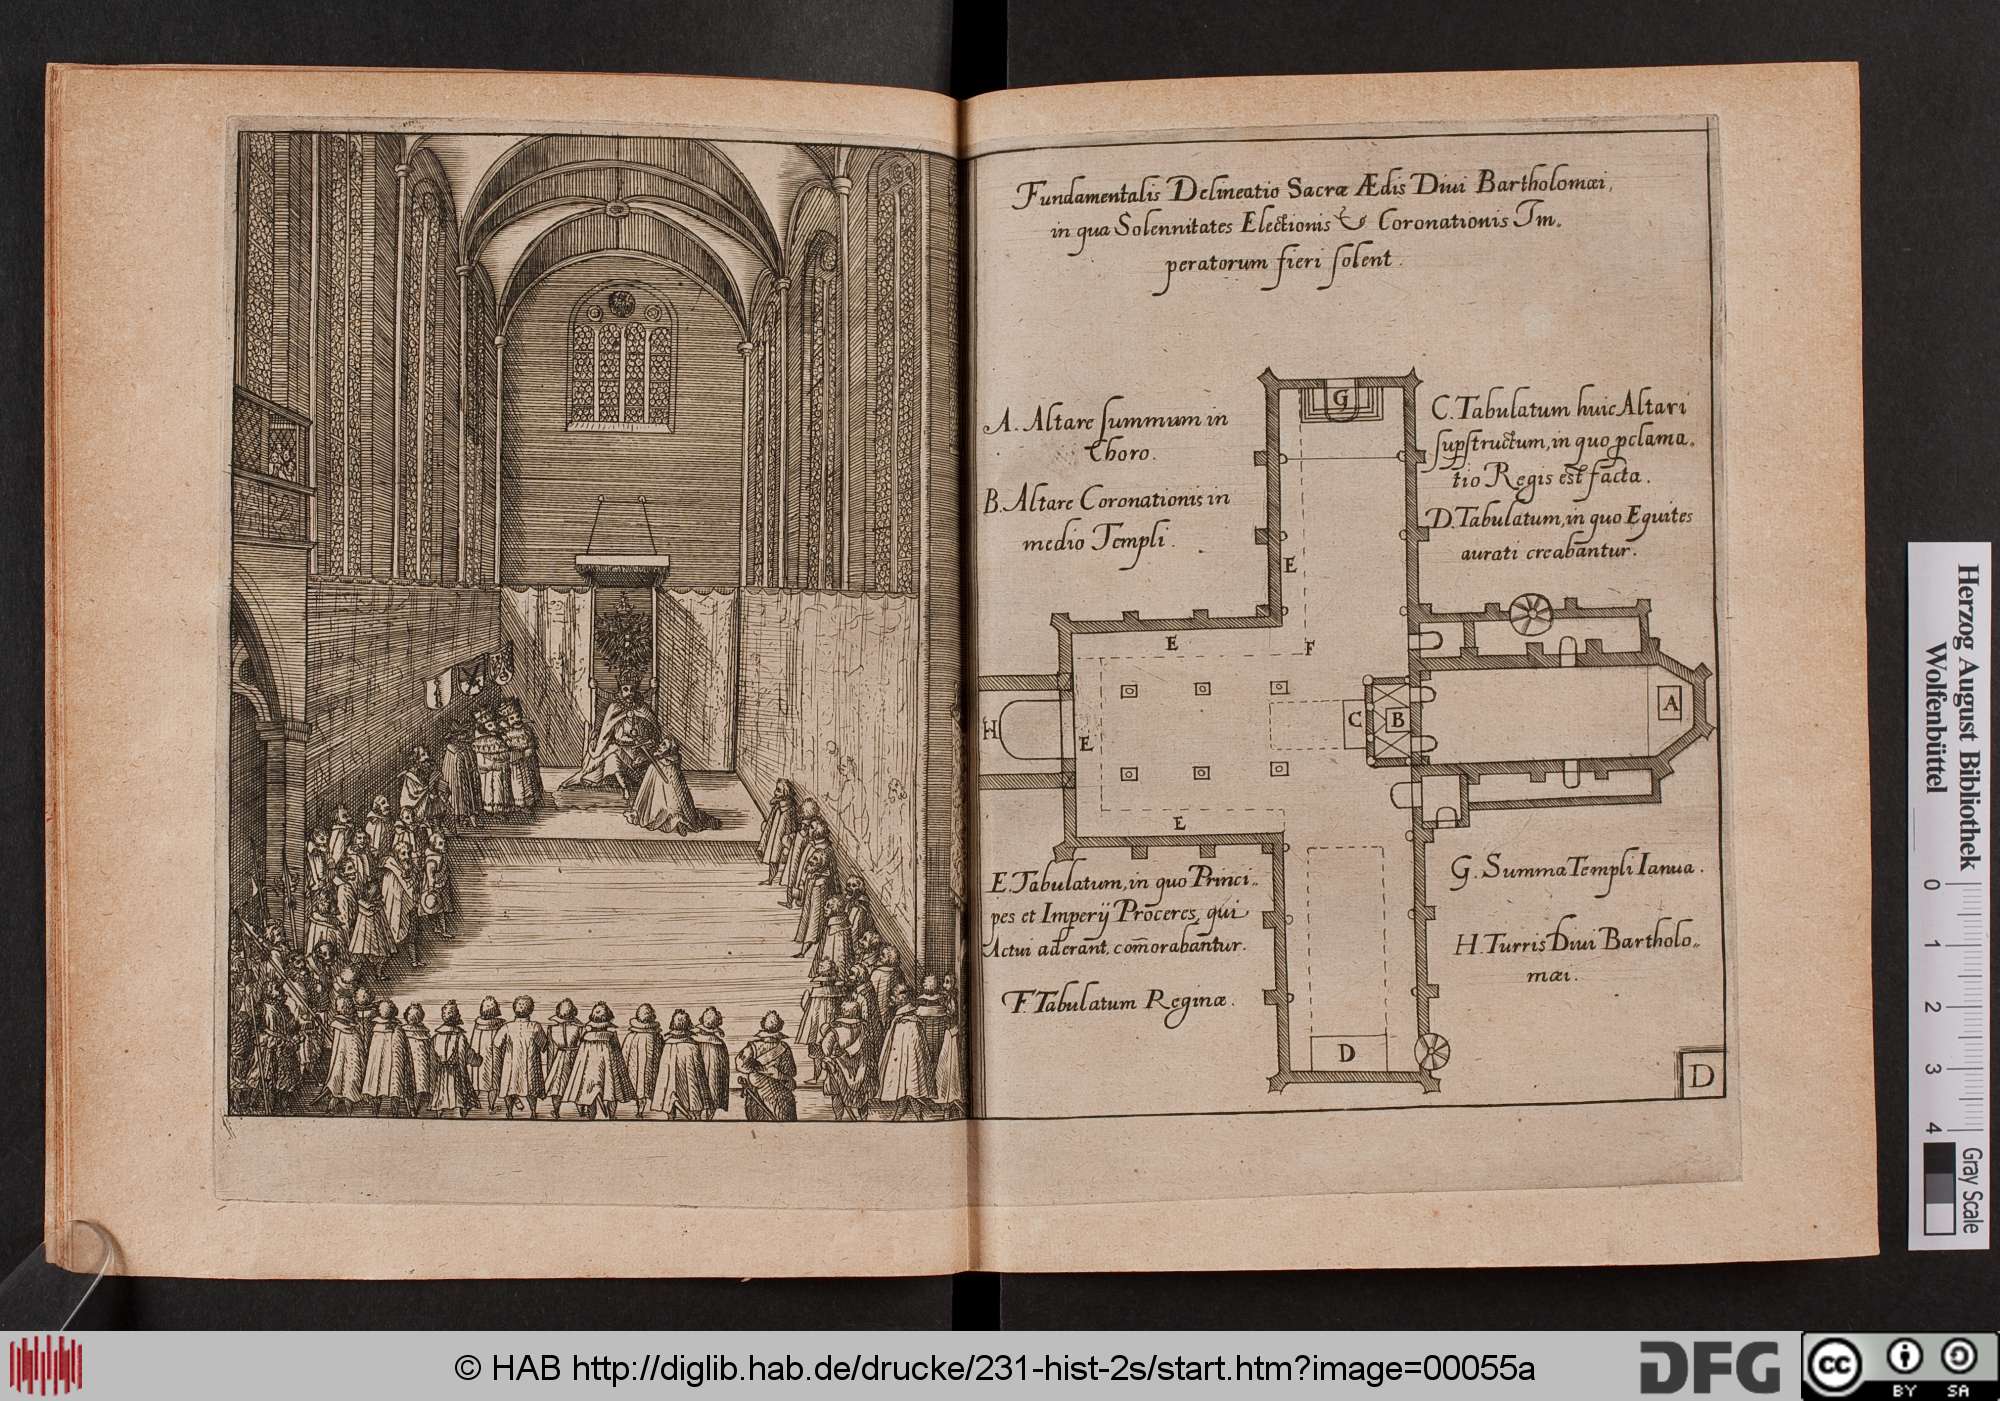 Fundamentalis Delineatio Sacræ Ædis Diui Bartholomæi,
in qua Solennitates Electionis & Coronationis Im„
peratorum fieri solent.
A. Altare summum in
Choro.
B. Altare Coronationis in
medio Templi.
C. Tabulatum huic Altari
supstructum, in quo pclama„
tio Regis est facta.
D. Tabulatum, in quo Equites
aurati creabantur.
G
E
E
F
H
E
C
B
A
E
D
E. Tabulatum, in quo Princi„
pes et Imperÿ Proceres, qui
Actui aderant, com̄orabantur.
F. Tabulatum Reginæ.
G. Summa Templi Ianua.
H. Turris Diui Bartholo„
mæi.
D
Herzog August Bibliothek
Wolfenbüttel
0 1 2 3 4
Gray Scale
© HAB http://diglib.hab.de/drucke/231-hist-2s/start.htm?image=00055a
DFG
cc
BY SA